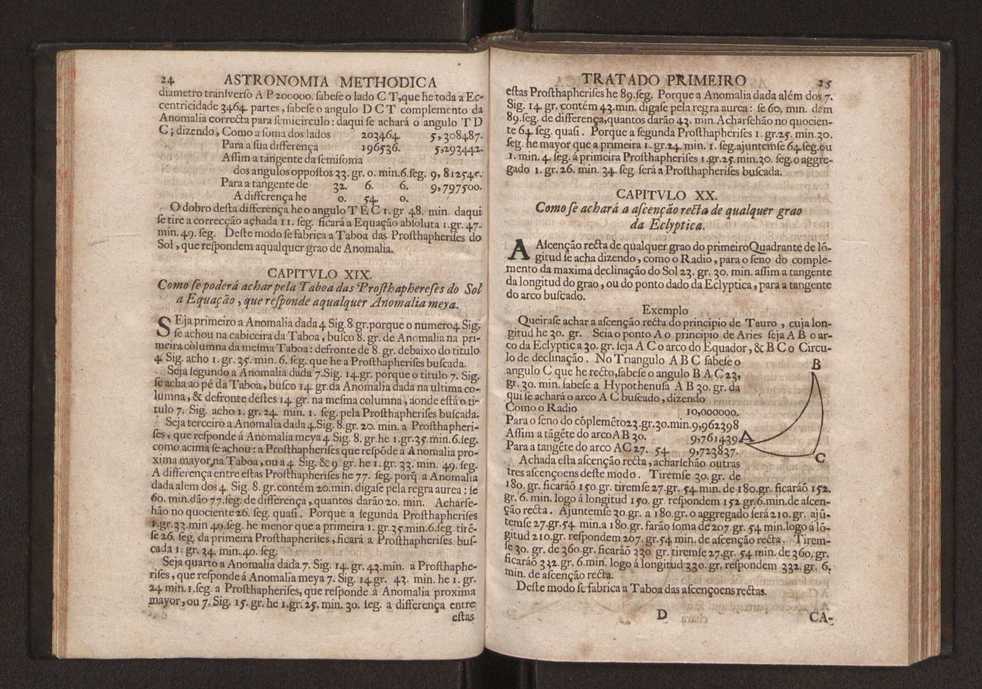 24 ASTRONOMIA METHODICA
diametro tranſverſo A P 200000. ſabeſe o lado C T, que he toda a Ec-
centricidade 3464 partes, ſabeſe o angulo D C T complemento da
Anomalia correcta para ſemicirculo: daqui ſe achará o angulo T D
C; dizendo, Como a ſoma dos lados 203464. 5,308487.
Para a ſua differença 196536. 5,293442.
Aſſim a tangente da ſemiſoma
dos angulos oppoſtos 33. gr. 0. min. 6. ſeg. 9,81254
Para a tangente de 32. 6. 6. 9,797500.
A differença he 0. 54. 0.
O dobro deſta differença he o angulo T E C 1. gr 48. min. daqui
ſe tire a correcção achada 11. ſeg. ficará a Equação abſoluta 1. gr. 47.
min. 49. ſeg. Deſte modo ſe fabrica a Taboa das Proſthapheriſes do
Sol, que reſpondem aqualquer grao de Anomalia.
CAPITVLO XIX.
Como ſe poderá achar pela Taboa das Proſthaphereſes do Sol
a Equação, que reſponde aqualquer Anomalia meya.
SEja primeiro a Anomalia dada 4 Sig. 8 gr. porque o numero 4 Sig.
ſe achou na cabiceira da Taboa, buſco 8. gr. de Anomalia na pri-
meira columna da meſma Taboa: defronte de 8. gr. debaixo do titulo
4. Sig. acho 1. gr. 35. min. 6. ſeg. que he a Proſthapheriſes buſcada.
Seja ſegundo a Anomalia dada 7. Sig. 14. gr. porque o titulo 7. Sig.
ſe acha ao pé da Taboa, buſco 14. gr. da Anomalia dada na ultima co-
lumna, & defronte deſtes 14. gr. na meſma columna, aonde eſtá o ti-
tulo 7. Sig. acho 1. gr. 24. min. 1. ſeg. pela Proſthapheriſes buſcada.
Seja terceiro a Anomalia dada 4. Sig. 8. gr. 20. min. a Proſthapheri-
ſes, que reſponde á Anomalia meya 4. Sig. 8. gr. he 1. gr. 35. min. 6. ſeg.
como acima ſe achou: a Proſthapheriſes que reſpõde a Anomalia pro-
xima mayor na Taboa, ou a 4. Sig. & 9 gr. he 1. gr. 33. min. 49. ſeg.
A differença entre eſtas Proſthapheriſes he 77. ſeg. porq̃ a Anomalia
dada alem dos 4. Sig. 8. gr. contém 20. min. digaſe pela regra aurea: ſe
60. min. dão 77. ſeg. de differença, quantos darão 20. min. Acharſe-
hão no quociente 26. ſeg. quaſi. Porque a ſegunda Proſthapheriſes
1. gr. 33. min 49. ſeg. he menor que a primeira 1. gr. 35. min. 6. ſeg. tirẽ-
ſe 26. ſeg. da primeira Proſthapheriſes, ficará a Proſthapheriſes buſ-
cada 1. gr. 34. min. 40. ſeg.
Seja quarto a Anomalia dada 7. Sig. 14. gr. 43. min. a Proſthaphe-
riſes, que reſponde á Anomalia meya 7. Sig. 14. gr. 43. min. he 1. gr.
24. min. 1. ſeg. a Proſthapheriſes, que reſponde á Anomalia proxima
mayor, ou 7. Sig. 15. gr. he 1. gr. 25. min. 30. ſeg. a differença entre
eſtas
TRATADO PRIMEIRO 25
eſtas Proſthapheriſes he 89. ſeg. Porque a Anomalia dada além dos 7.
Sig. 14. gr. contém 43. min. digaſe pela regra aurea: ſe 60. min. dem
89. ſeg. de differença, quantos darão 43. min. Acharſehão no quocien-
te 64. ſeg. quaſi. Porque a ſegunda Proſthapheriſes 1. gr. 25. min. 30.
ſeg. he mayor que a primeira 1. gr. 24. min. 1. ſeg. ajuntemſe 64. ſeg. ou
1. min. 4. ſeg. á primeira Proſthapheriſes 1. gr. 25. min. 30. ſeg. o aggre-
gado 1. gr. 26. min. 34. ſeg. ſerá a Proſthapheriſes buſcada.
CAPITVLO XX.
Como ſe achará a aſcenção recta de qualquer grao
da Eclyptica.
A Aſcenção recta de qualquer grao do primeiro Quadrante de lõ-
gitud ſe acha dizendo, como o Radio, para o ſeno do comple-
mento da maxima declinação do Sol 23. gr. 30. min. aſſim a tangente
da longitud do grao, ou do ponto dado da Eclyptica, para a tangente
do arco buſcado.
Exemplo
Queiraſe achar a aſcenção recta do principio de Tauro, cuja lon-
gitud he 30. gr. Seia o ponto A o principio de Aries ſeja A B o ar-
co da Eclyptica 30. gr. ſeja A C o arco do Equador, & B C o Circu-
lo de declinação. No Triangulo A B C ſabeſe o
angulo C que he recto, ſabeſe o angulo B A C 23,
gr. 30. min. ſabeſe a Hypothenuſa A B 30. gr. da
qui ſe achará o arco A C buſcado, dizendo
Como o Radio 10,000000.
Para o ſeno do cõplemẽto 23. gr. 30. min. 9,962398
Aſſim a tãgẽte do arco A B 30. 9,761439
Para a tangẽte do arco A C 27. 54 9,723837.
Achada eſta aſcenção recta, acharſehão outras
tres aſcençoens deſte modo. Tiremſe 30. gr. de
180. gr. ficaráõ 150. gr. tiremſe 27. gr. 54. min. de 180. gr. ficaráõ 152.
gr. 6. min. logo á longitud 150. gr. reſpondem 152 gr. 6. min. de aſcen-
ção recta. Ajuntemſe 30. gr. a 180. gr. o aggregado ſerá 210. gr. ajũ-
temſe 27. gr. 54 min. a 180. gr. farão ſoma de 207. gr. 54 min. logo a lõ-
gitud 210. gr. reſpondem 207. gr. 54 min. de aſcenção recta. Tirem-
ſe 30. gr. de 360. gr. ficaráõ 330 gr. tiremſe 27. gr. 54 min. de 360. gr.
ficaráõ 332. gr. 6. min. logo á longitud 330. gr. reſpondem 332. gr. 6.
min. de aſcenção recta.
Deſte modo ſe fabrica a Taboa das aſcençoens rectas.
B
A
C
D CA-